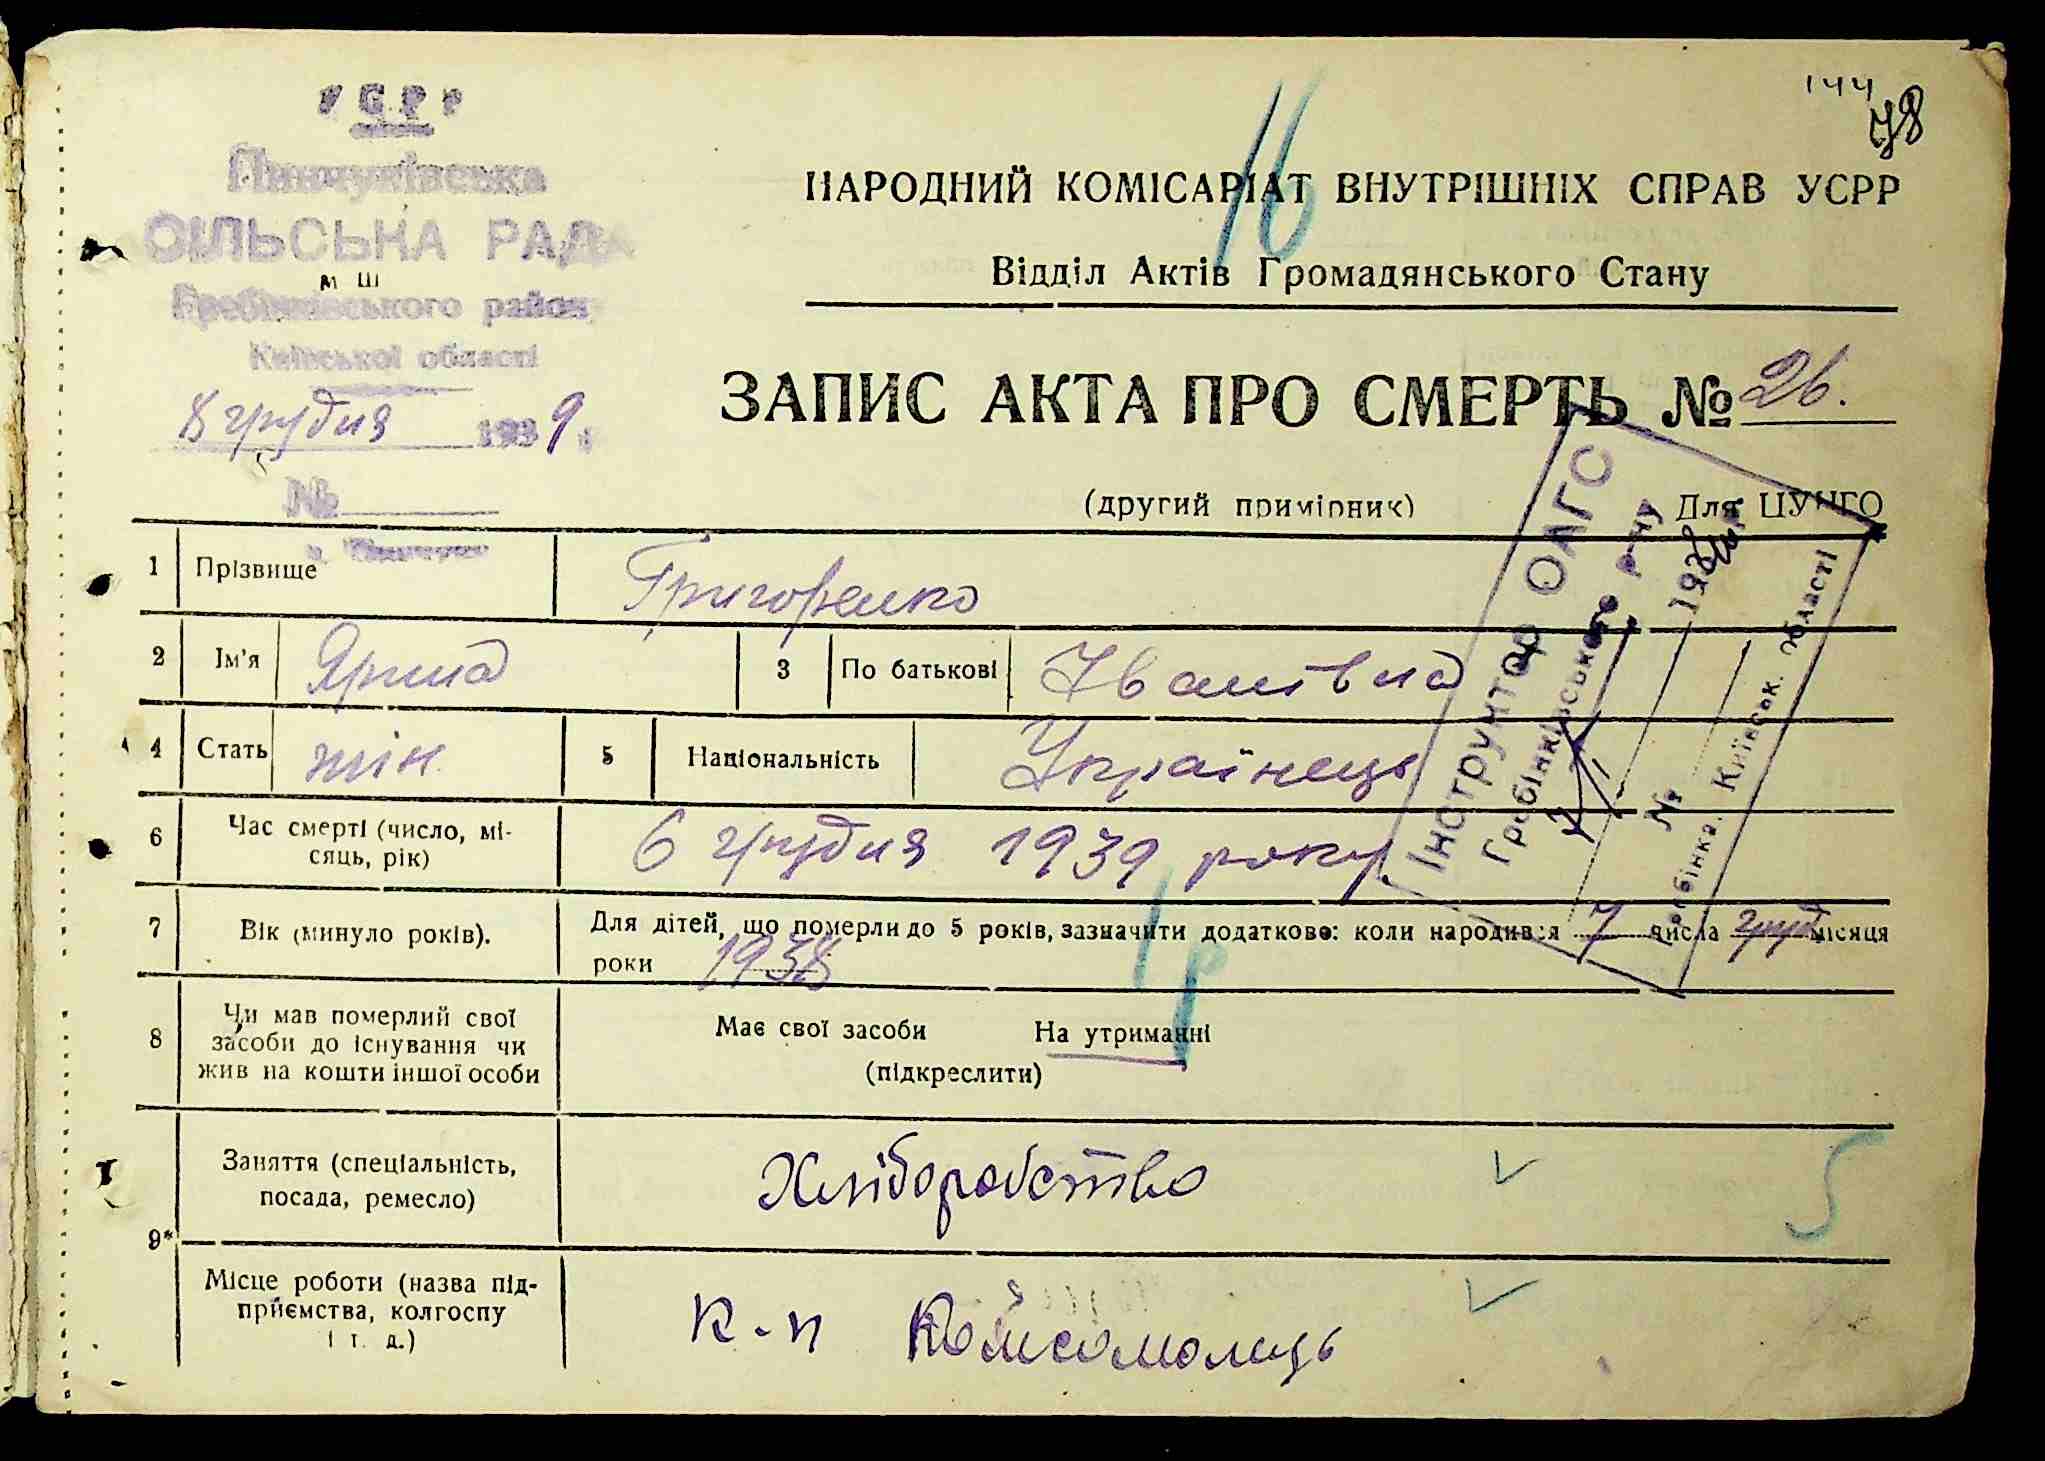 144
78
УСРР
Пинчуківська
СІЛЬСЬКА РАДА
Гребінківського району
Київської області
8 грудня 1939 р.
№
16
НАРОДНИЙ КОМІСАРІАТ ВНУТРІШНІХ СПРАВ УСРР
Відділ Актів Громадянського Стану
ЗАПИС АКТА ПРО СМЕРТЬ № 26.
(другий примірник) Для ЦУНГО
Інструктор ОАГС
Гребінківського р-ну
193
№
Гребінка, Київськ. області
1 Прізвище Григоренко
2 Ім'я Ярина 3 По батькові Іванівна
4 Стать жін. 5 Національність Українець
6 Час смерті (число, мі-
сяць, рік) 6 грудня 1939 року
7 Вік (минуло років). Для дітей, що померли до 5 років, зазначити додатково: коли народився 7 числа груд місяця
роки 1938
1 р
8 Чи мав померлий свої
засоби до існування чи
жив на кошти іншої особи
Має свої засоби На утриманні
(підкреслити)
9* Заняття (спеціальність,
посада, ремесло) Хліборобство
5
Місце роботи (назва під-
приємства, колгоспу
і т. д.) К-п Комсомолець